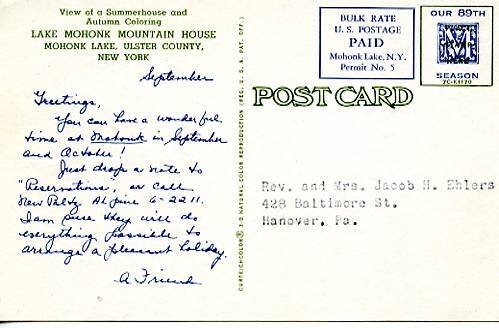 View of a Summerhouse and
Autumn Coloring
LAKE MOHONK MOUNTAIN HOUSE
MOHONK LAKE, ULSTER COUNTY,
NEW YORK
September
Greetings,
You can have a wonderful
time at Mohonk in September
and October!
Just drop a note to
"Reservations", or call
New Paltz ALpine 6-2211.
I am sure they will do
everything possible to
arrange a pleasant holiday.
A Friend
CURTEICHCOLOR® 3-D NATURAL COLOR REPRODUCTION (REG. U.S.A. PAT. OFF.)
BULK RATE
U. S. POSTAGE
PAID
Mohonk Lake, N.Y.
Permit No. 5
OUR 89TH
SEASON
7C-K1120
POST CARD
Rev. and Mrs. Jacob H. Ehlers
428 Baltimore St.
Hanover, Pa.